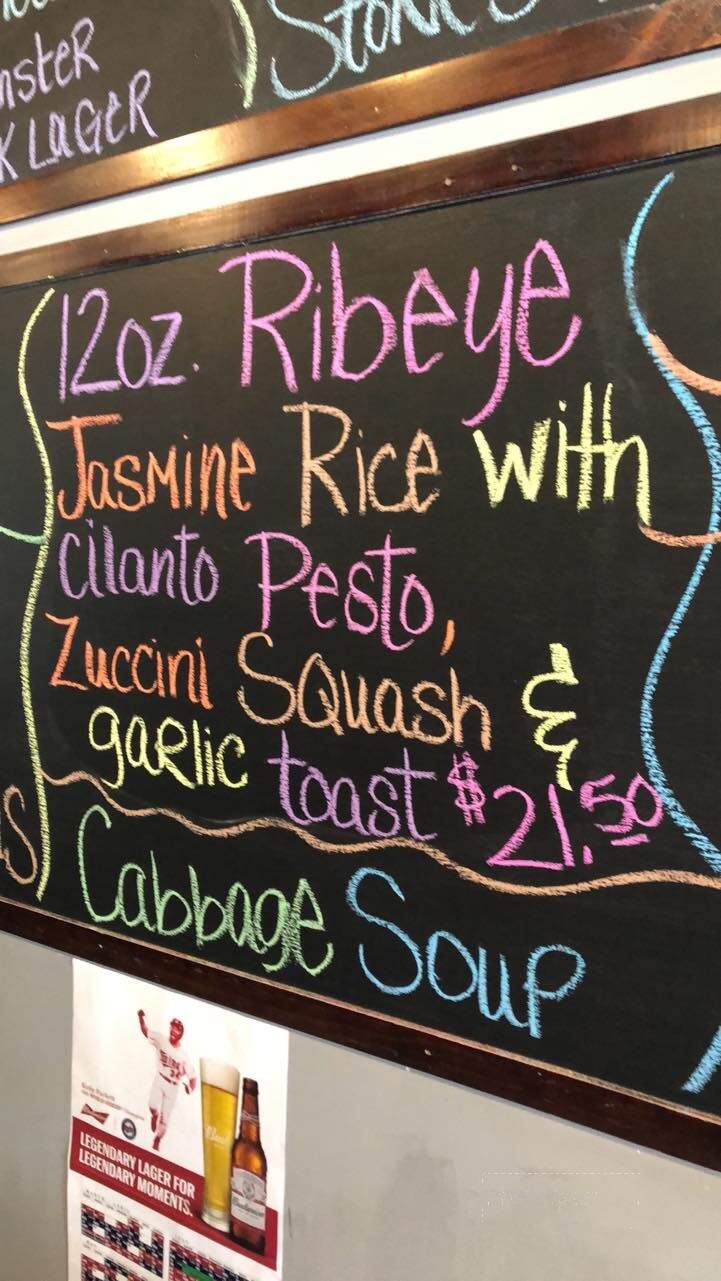 LaGeR
12oz. Ribeye
Jasmine Rice with
Cilanto Pesto,
Zuccini Squash &
gaRlic toast $21.50
Cabbage Soup
LEGENDARY LAGER FOR
LEGENDARY MOMENTS.
Budweiser